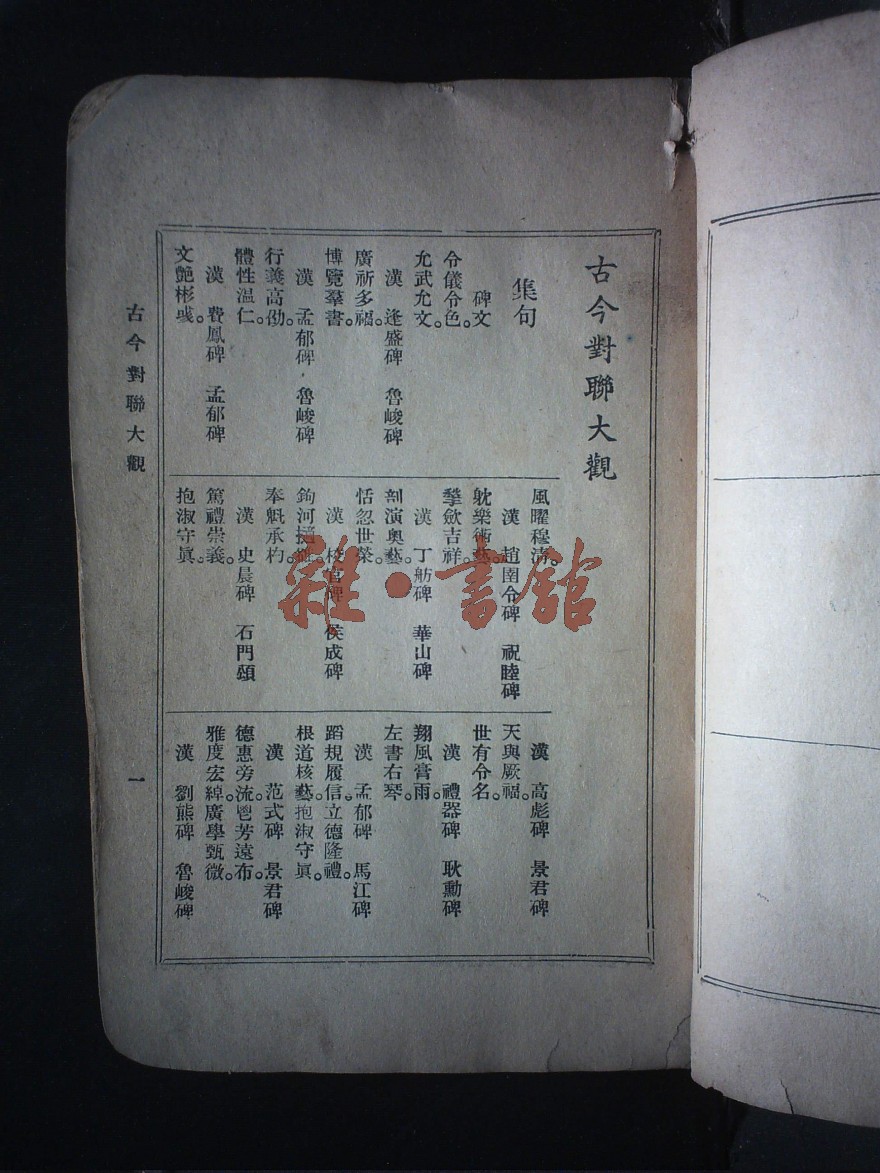 古今對聯大觀
集句
碑文
令儀令色。
允武允文。
漢　逢盛碑　魯峻碑
廣祈多福。
博覽羣書。
漢　孟郁碑　魯峻碑
行義高劭。
體性溫仁。
漢　費鳳碑　孟郁碑
文艷彬彧。
風曜穆清。
漢　趙圉令碑　祝睦碑
躭樂術藝。
擥歛吉祥。
漢　丁魴碑　華山碑
剖演奧藝。
恬忽世榮。
漢　校官碑　侯成碑
鉤河擿雒。
奉魁承杓。
漢　史晨碑　石門頌
篤禮崇義。
抱淑守眞。
漢　高彪碑　景君碑
天與厥福。
世有令名。
漢　禮器碑　耿勳碑
翔風膏雨。
左書右琴。
漢　孟郁碑　馬江碑
蹈規履信。立德隆禮。
根道核藝。抱淑守眞。
漢　范式碑　景君碑
德惠旁流。鬯芳遠布。
雅度宏綽。廣學甄微。
漢　劉熊碑　魯峻碑
古今對聯大觀
一
雜·書館